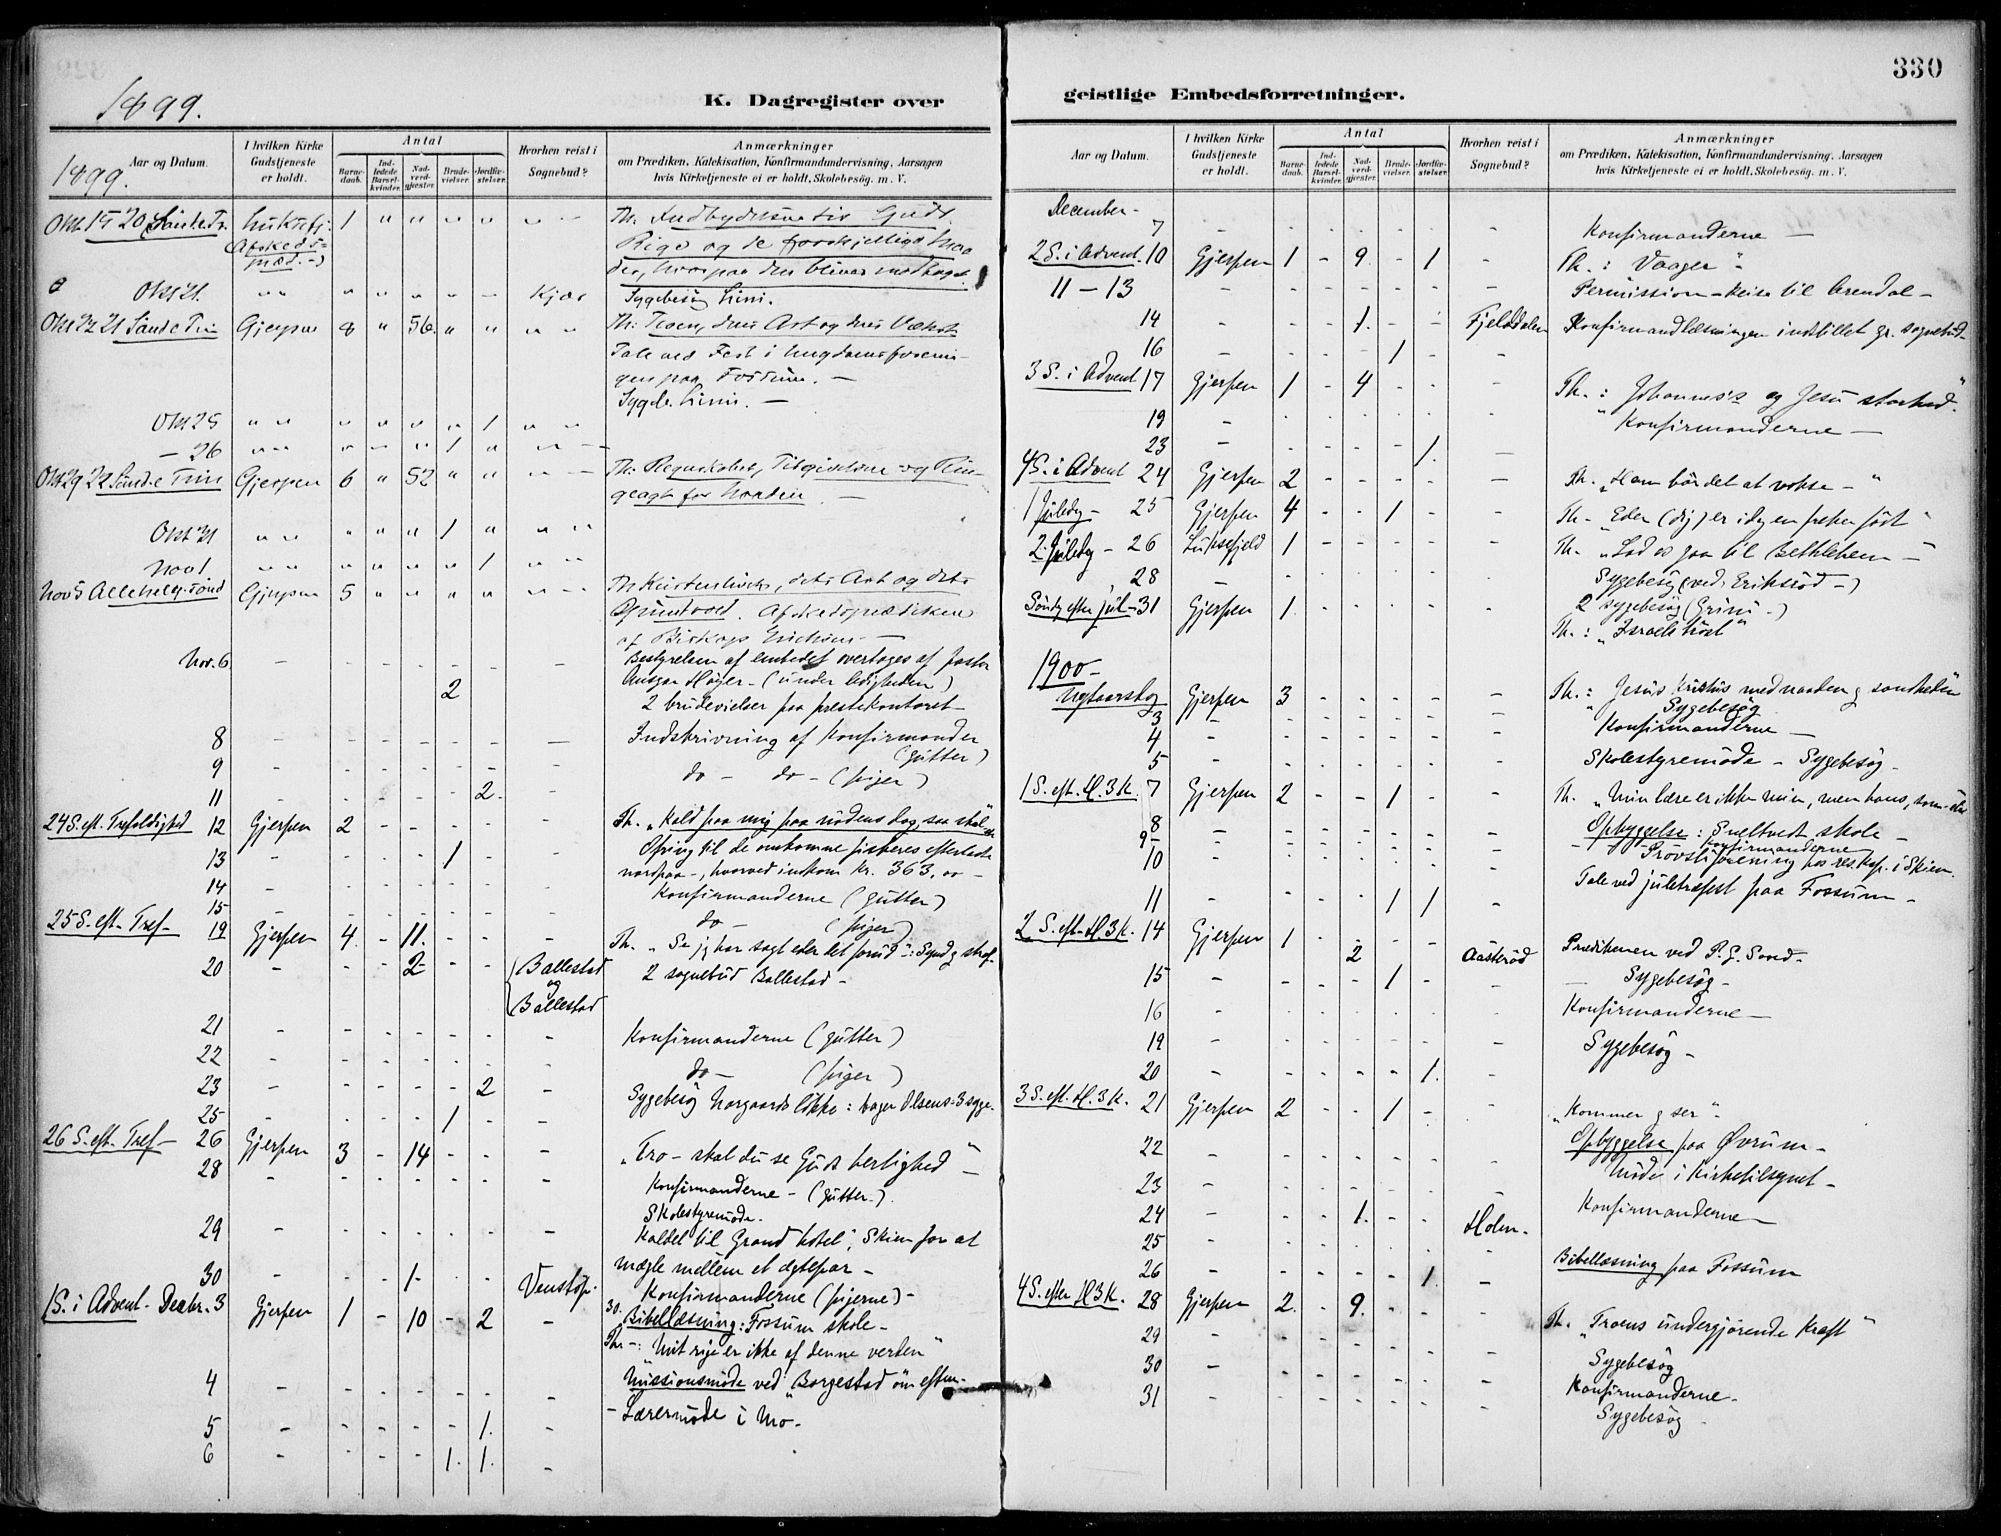 1899.
K. Dagregister over
1899.
Aar og Datum.
I hvilken Kirke Gudstjeneste er holdt.
Antal
Barne-daab.
Ind-ledede Barsel-kvinder.
Nad-verd-gjester.
Brude-vielser.
Jordfæ-stelser.
Hvorhen reist i Sognebud?
Anmærkninger
om Prædiken, Katekisation, Konfirmandundervisning, Aarsagen
hvis Kirketjeneste ei er holdt, Skolebesøg. m. V.
Okt 15 20 Sønd e Tr. Luksefj. 1 " " " " " " Th: Indbydelsen til Guds
(Afskeds- Rige og de forskjellige Maa
præd.-) der, hvorpaa den bliver modtaget.
Okt 21. " " " " " " - Kjær Sygebesøg Limi.
Okt 22 21 Sønd e Trin Gjerpen 8 " 56. " " " " Th: Troen, dens Art og dens Vækst
Tale ved Fest i Ungdomsforenin-
gen paa Fossum. -
Sygeb. Limi. -
Okt 25 " " " " " " 1 " "
- 26 " " " " " 1 " " "
Okt 29 22 Sønd e Trin Gjerpen 6 " 52 " " " " Th: Regnskabet, Tilgivelsen og
for Naaden -
Okt 31 " " " " " 1 " " "
Nov 1 " " " " " " 1 " "
Nov 5 Allehelg. Sønd Gjerpen 5 " " " " " " Th: Kristenlivets, dets Art og dets
Grundvold. Afskedsprædiken
af Biskop
Nov. 6 - Bestyrelsen af embedet overtages af pastor
Ansgar Høyer - (under ledigheden)
2 2 brudevielser paa prestekontoret -
8 Indskrivning af Konfirmander
(gutter)
9 do - do - (piger)
11 2.
24 S. eft. Trefoldighed 12 Gjerpen 2 - Th. "Kald paa mig paa nødens dag, saa skal
Ofring til de omkomne fiskeres efterladte
13 1 nordpaa -, hvorved indkom Kr. 363.00 -
14 Konfirmanderne (gutter)
15 do (piger)
25 S. eft. Tref - 19 Gjerpen 4. - 11. - - - Th. "Se jeg har sagt eder det forud": Synd g straf.
20 - - 2 - - Ballestad 2 sognebud Ballestad -
og
Ballestad
21 Konfirmanderne (gutter)
22 do - (piger)
23 2 Sygebesøg Norgaards løkke: bager Olsens: 3 syge.
25 1
26 S. eft. Tref - 26 Gjerpen 3 - 14 - - - "Tro - skal du se Guds herlighed" -
28 Konfirmanderne - (gutter.)
Skolestyremøde.
29 Kaldet til Grand hotel, Skien for at
mægle mellem et ægtepar -
30 - 1 - Venstøp. Konfirmanderne (pigerne) -
30. Bibellæsning: Fossum skole -
1 S. i Advent - Decbr. 3 Gjerpen 1 - 10 - 2 - Th. -: Mit rige er ikke af denne verden"
Missionsmøde ved Borgestad om eftm. -
4 - Lærermøde i Mo -
5 1.
6 1. 1.
330
geistlige Embedsforretninger.
Aar og Datum.
I hvilken Kirke Gudstjeneste er holdt.
Antal
Barne-daab.
Ind-ledede Barsel-kvinder.
Nad-verd-gjester.
Brude-vielser.
Jordfæ-stelser.
Hvorhen reist i Sognebud?
Anmærkninger
om Prædiken, Katekisation, Konfirmandundervisning, Aarsagen
hvis Kirketjeneste ei er holdt, Skolebesøg. m. V.
December -
7 Konfirmanderne -
2 S. i Advent. 10 Gjerpen 1 - 9 - 1 - Th.: Vaager" -
11 - 13 Permission - Reise til Arendal -
14 1. Fjelddalen Konfirmandlæsningen indstillet gr. sognebud -
16 1
3 S. i Advent 17 Gjerpen 1 - 4 - - - Th.: "Johannes's og Jesu storhed."
19 Konfirmanderne -
23 1.
4 S. i Advent 24 Gjerpen 2 Th. "Ham bør det at vokse - "
1 Juledg - 25 Gjerpen 4 - - 1 - Th - Eder (dig) er idag en frelser født"
2. Juledg - 26 Luksefjeld 1 Th. "Lad os gaa til Bethlehem - "
28 Sygebesøg (ved Eriksrød -)
2 sygebesøg (Grini -)
Søndg efter jul - 31 Gjerpen 1. Th.: "Israels trøst"
1900 -
Nytaarsdag Gjerpen 3 Th.: "Jesus Kristus med naaden g sandheden"
3 Sygebesøg
4 Konfirmanderne -
5 Skolestyremøde - Sygebesøg -
1 S. eft. H. 3 K. 7 Gjerpen 2 - - 1 - - Th. "Min lære er ikke min, men hans, som -
8 Opbyggelse: Sneltvedt skole -
9 - Konfirmanderne
10 Provstiforening hos res. Kap. i Skien.
11 1 1 Tale ved juletræfest paa Fossum -
2 S. eft. H. 3 K. 14 Gjerpen 1 - 2 - - Aasterød Prædikenen ved P. G. Sand -
15 1 Sygebesøg -
16 Konfirmanderne -
19 Sygebesøg -
20 1.
3 S. eft. H. 3 K. 21 Gjerpen 2 - - 1 - "Kommer g ser" -
Opbyggelse paa Øvrum -
22 Møde i Kirketilsynet -
23 Konfirmanderne -
24 1. Holm -
25 Bibellæsning paa Fossum
26 1.
4 S. efter H 3 K. 28 Gjerpen 2. - 9. - Th. "Troens undergjørende kraft"
29 Sygebesøg
30 Konfirmanderne -
31 Sygebesøg